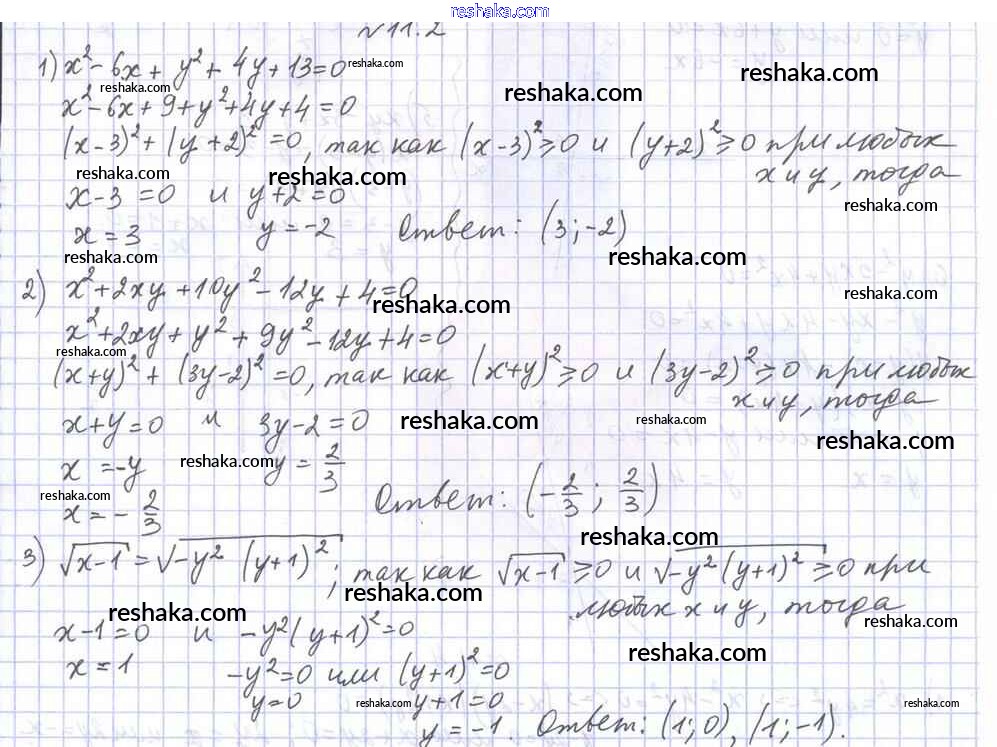 reshaka.com
№11.2
1) x² - 6x + y² + 4y + 13 = 0 reshaka.com
reshaka.com
reshaka.com
x² - 6x + 9 + y² + 4y + 4 = 0 reshaka.com
(x-3)² + (y+2)² = 0, так как (x-3)² ≥ 0 и (y+2)² ≥ 0 при любых
reshaka.com reshaka.com x и y, тогда
x-3 = 0 и y+2 = 0 reshaka.com
x = 3 y = -2 Ответ: (3; -2)
reshaka.com reshaka.com
2) x² + 2xy + 10y² - 12y + 4 = 0 reshaka.com
reshaka.com
x² + 2xy + y² + 9y² - 12y + 4 = 0
reshaka.com
(x+y)² + (3y-2)² = 0, так как (x+y)² ≥ 0 и (3y-2)² ≥ 0 при любых
x и y, тогда
x+y = 0 и 3y-2 = 0 reshaka.com reshaka.com
reshaka.com
x = -y reshaka.com y = 2/3
reshaka.com
x = - 2/3 Ответ: (-2/3; 2/3)
reshaka.com
3) √x-1 = √-y² (y+1)²; так как √x-1 ≥ 0 и √-y²(y+1)² ≥ 0 при
reshaka.com reshaka.com любых x и y, тогда
reshaka.com
x-1 = 0 и -y²(y+1)² = 0
reshaka.com
x = 1 -y² = 0 или (y+1)² = 0
y = 0 reshaka.com y+1 = 0 reshaka.com
y = -1. Ответ: (1; 0), (1; -1).